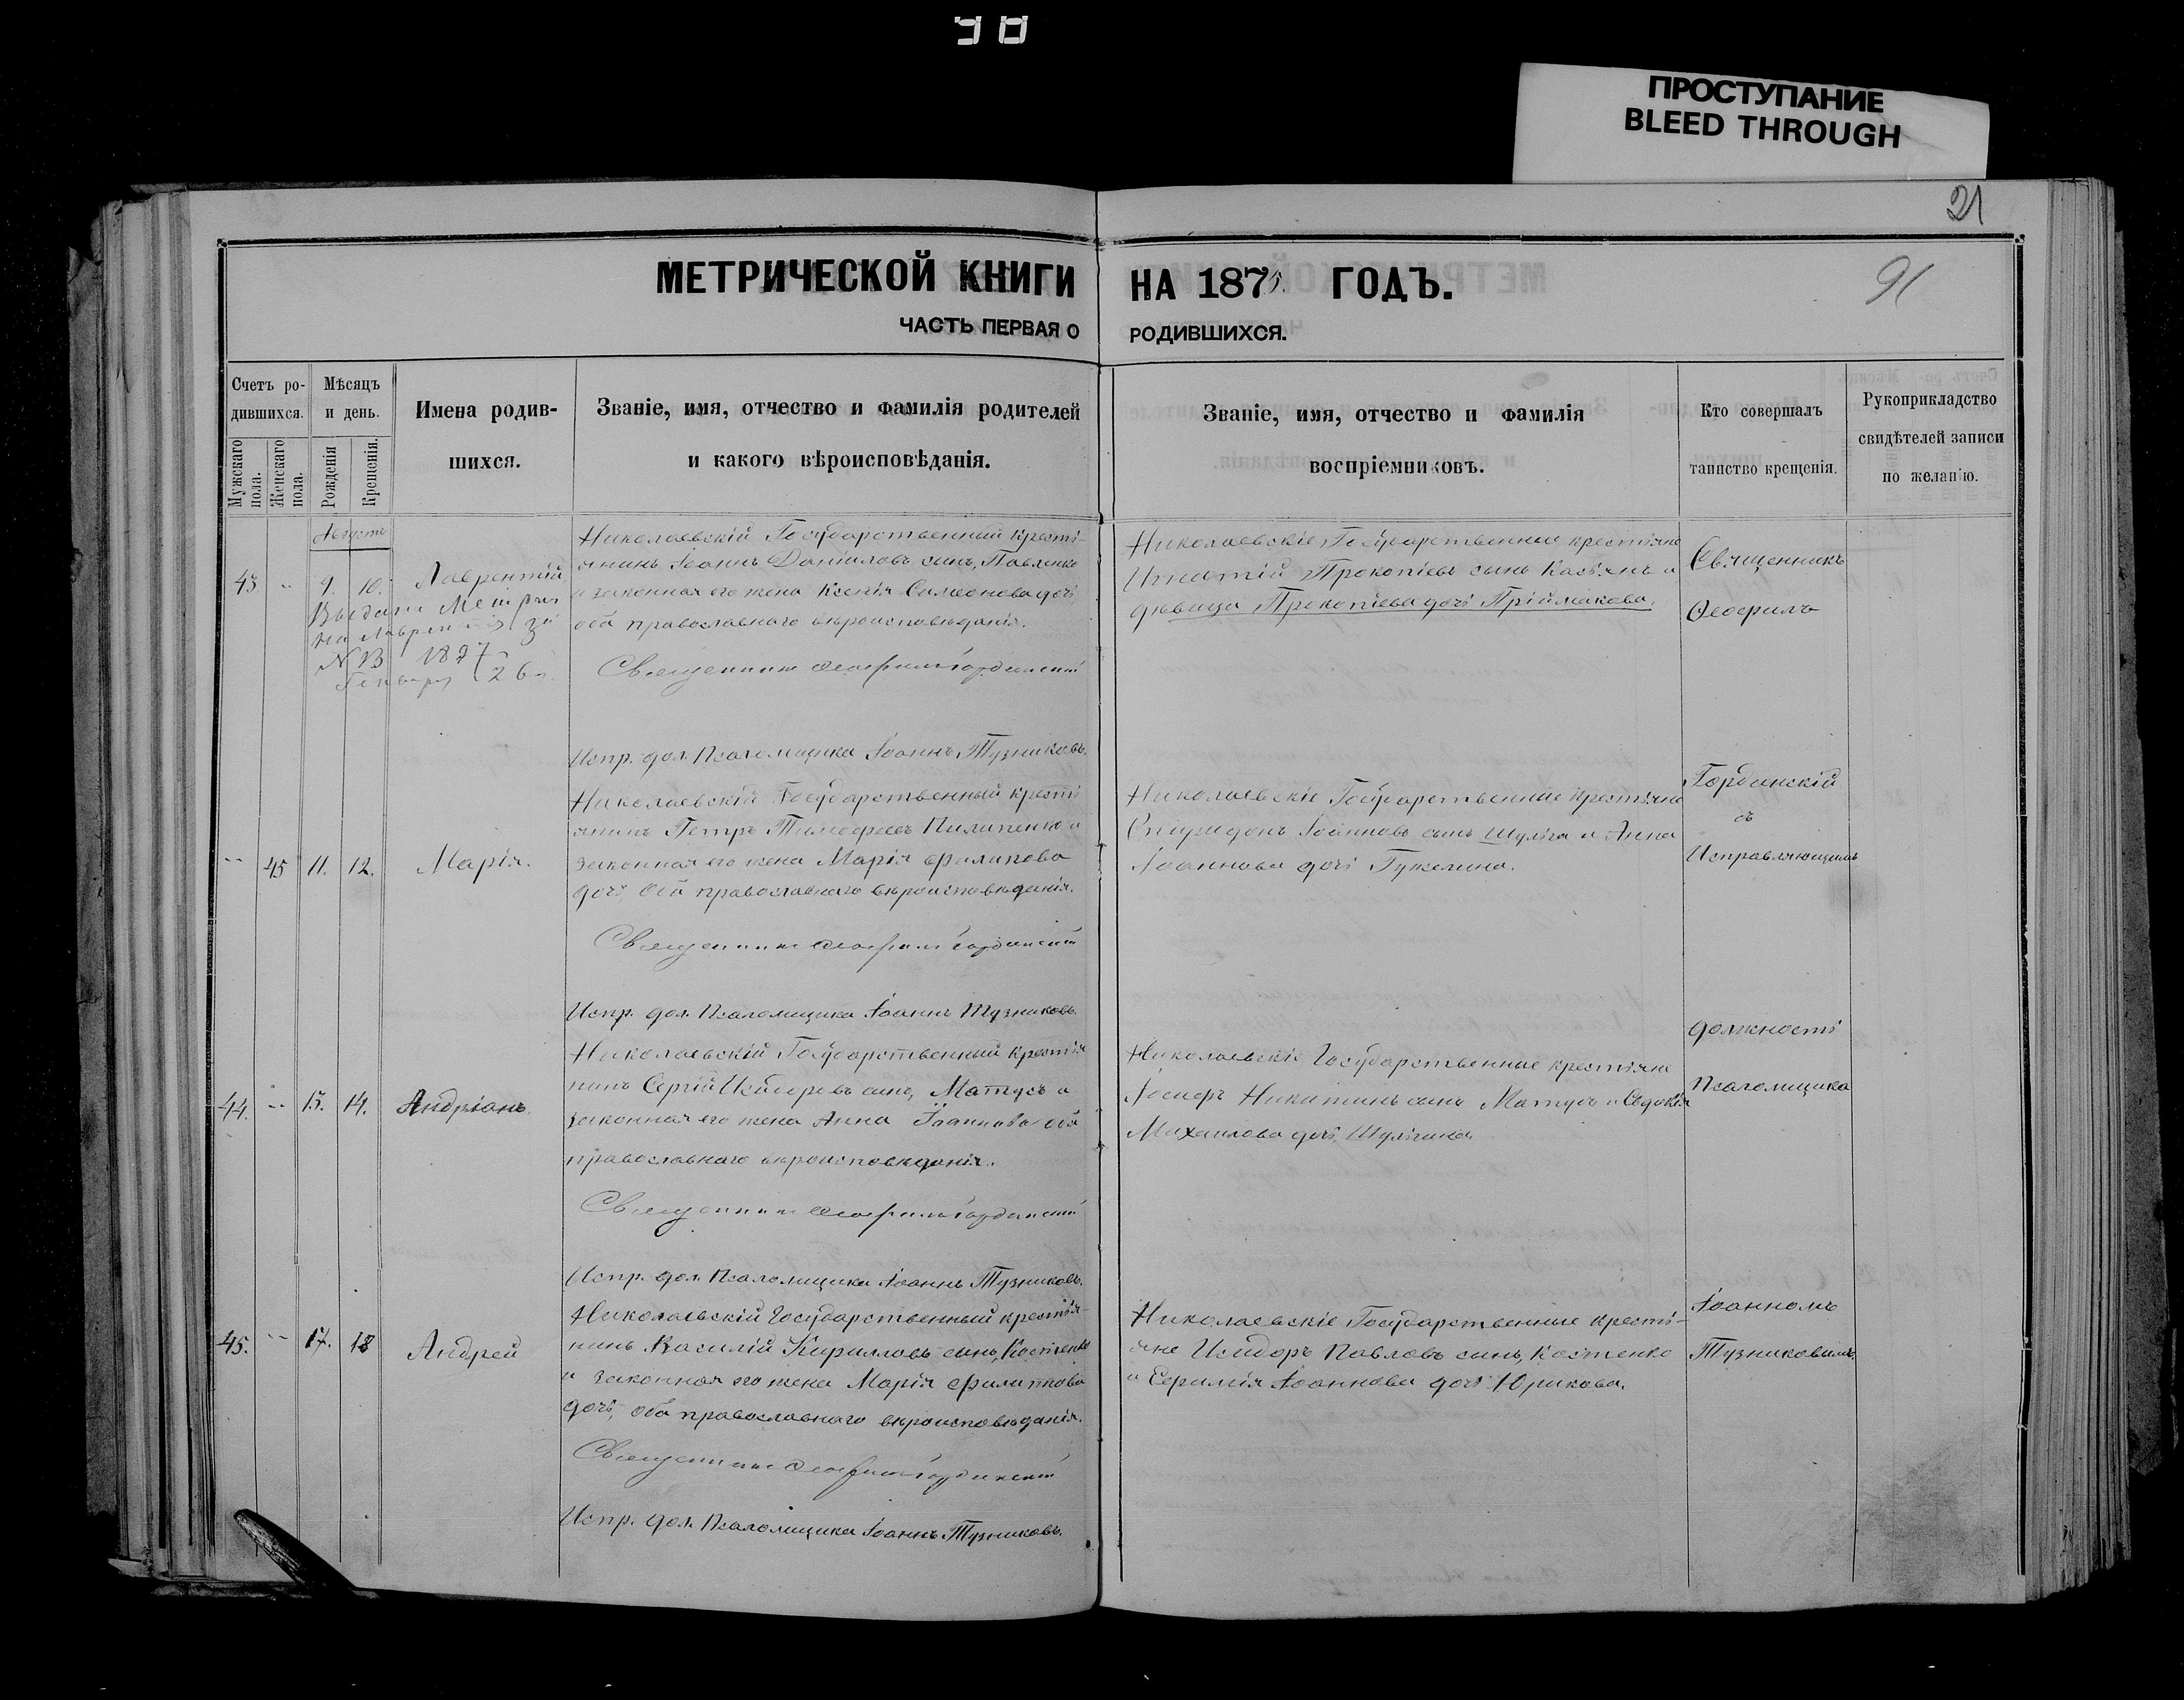 ПРОСТУПАНИЕ
BLEED THROUGH
21
91
МЕТРИЧЕСКОЙ КНИГИ НА 187 ГОДЪ.
ЧАСТЬ ПЕРВАЯ О РОДИВШИХСЯ.
Счетъ ро-
дившихся.
Мужскаго
пола.
Женскаго
пола.
Мѣсяцъ
и день.
Рожденія
Крещенія.
Имена родив-
шихся.
Званіе, имя, отчество и фамилія родителей
и какого вѣроисповѣданія.
Званіе, имя, отчество и фамилія
воспріемниковъ.
Кто совершалъ
таинство крещенія.
Рукоприкладство
свидѣтелей записи
по желанію.
Августъ
43 " 9. 10. Лаврентій
Николаевскій Государственный кресть-
янинъ Іоаннъ Даніиловъ сынъ, Павленко
и законная его жена Ксенія Симеонова дочь
оба православнаго вѣроисповѣданія.
Священникъ Ѳеофилъ Гординскій
Испр. дол. Псаломщика Іоаннъ Тузниковъ.
Выдана Метрик
на Лаврентія за
N 13 1897
Генваря 26
Николаевскіе Государственные крестьяне
Игнатій Прокопіевъ сынъ Касьянъ и
дѣвица Прокопіева дочь Пріймакова.
Священникъ
Ѳеофилъ
" 45 11. 12. Марія.
Николаевскій Государственный кресть
янинъ Петръ Тимофеевъ Пилипенко и
законная его жена Марія Филипова
дочь, оба православнаго вѣроисповѣданія.
Священникъ Ѳеофилъ Гординскій
Испр. дол. Псаломщика Іоаннъ Тузниковъ.
Николаевскіе Государственные крестьяне
Спиридонъ Іоанновъ сынъ Шульга и Анна
Іоаннова дочь Гужелина.
Гординскій
съ
Исправляющимъ
44. " 13. 14. Андріанъ.
Николаевскій Государственный крестья
нинъ Сергій сынъ, Матусъ и
законная его жена Анна Іоаннова оба
православнаго вѣроисповѣданія.
Священникъ Ѳеофилъ Гординскій
Испр. дол. Псаломщика Іоаннъ Тузниковъ.
Николаевскіе Государственные крестьяне
Іосифъ Никитинъ сынъ Матусъ и Евдокія
Михаилова дочь, Шульгина.
должность
Псаломщика
45. " 17. 18 Андрей
Николаевскій Государственный крестья-
нинъ Василій Кирилловъ сынъ, Костенко
и законная его жена Марія Филиппова
дочь, оба православнаго вѣроисповѣданія.
Священникъ Ѳеофилъ Гординскій
Испр. дол. Псаломщика Іоаннъ Тузниковъ.
Николаевскіе Государственные кресть-
яне Исидоръ Павловъ сынъ, Костенко
и Ефимія Іоаннова дочь Юрикова.
Іоанномъ
Тузниковымъ.